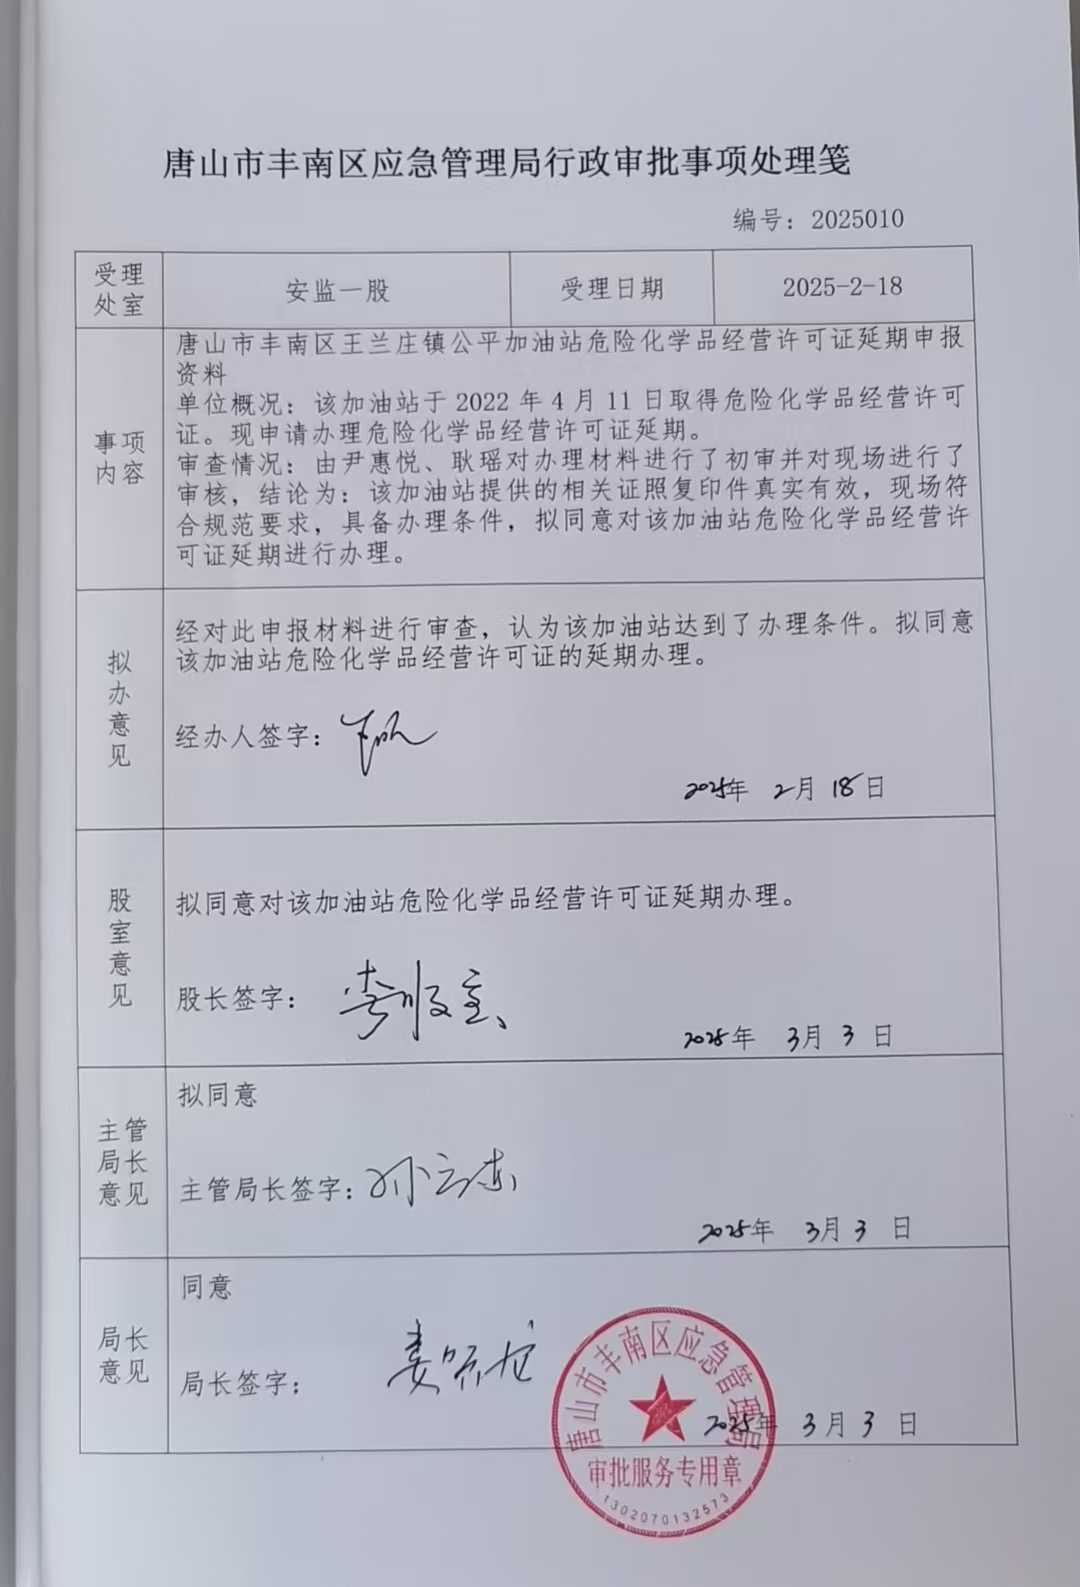 唐山市丰南区应急管理局行政审批事项处理笺
编号：2025010
受理处室
安监一股
受理日期
2025-2-18
事项内容
唐山市丰南区王兰庄镇公平加油站危险化学品经营许可证延期申报
资料
单位概况：该加油站于 2022 年 4 月 11 日取得危险化学品经营许可
证。现申请办理危险化学品经营许可证延期。
审查情况：由尹惠悦、耿瑶对办理材料进行了初审并对现场进行了
审核，结论为：该加油站提供的相关证照复印件真实有效，现场符
合规范要求，具备办理条件，拟同意对该加油站危险化学品经营许
可证延期进行办理。
拟办意见
经对此申报材料进行审查，认为该加油站达到了办理条件。拟同意
该加油站危险化学品经营许可证的延期办理。
经办人签字：
2025年 2月 18日
股室意见
拟同意对该加油站危险化学品经营许可证延期办理。
股长签字：
2025年 3月 3日
主管局长意见
拟同意
主管局长签字：
2025年 3月 3日
局长意见
同意
局长签字：
2025年 3月 3日
唐山市丰南区应急管理局
审批服务专用章
1302070132573